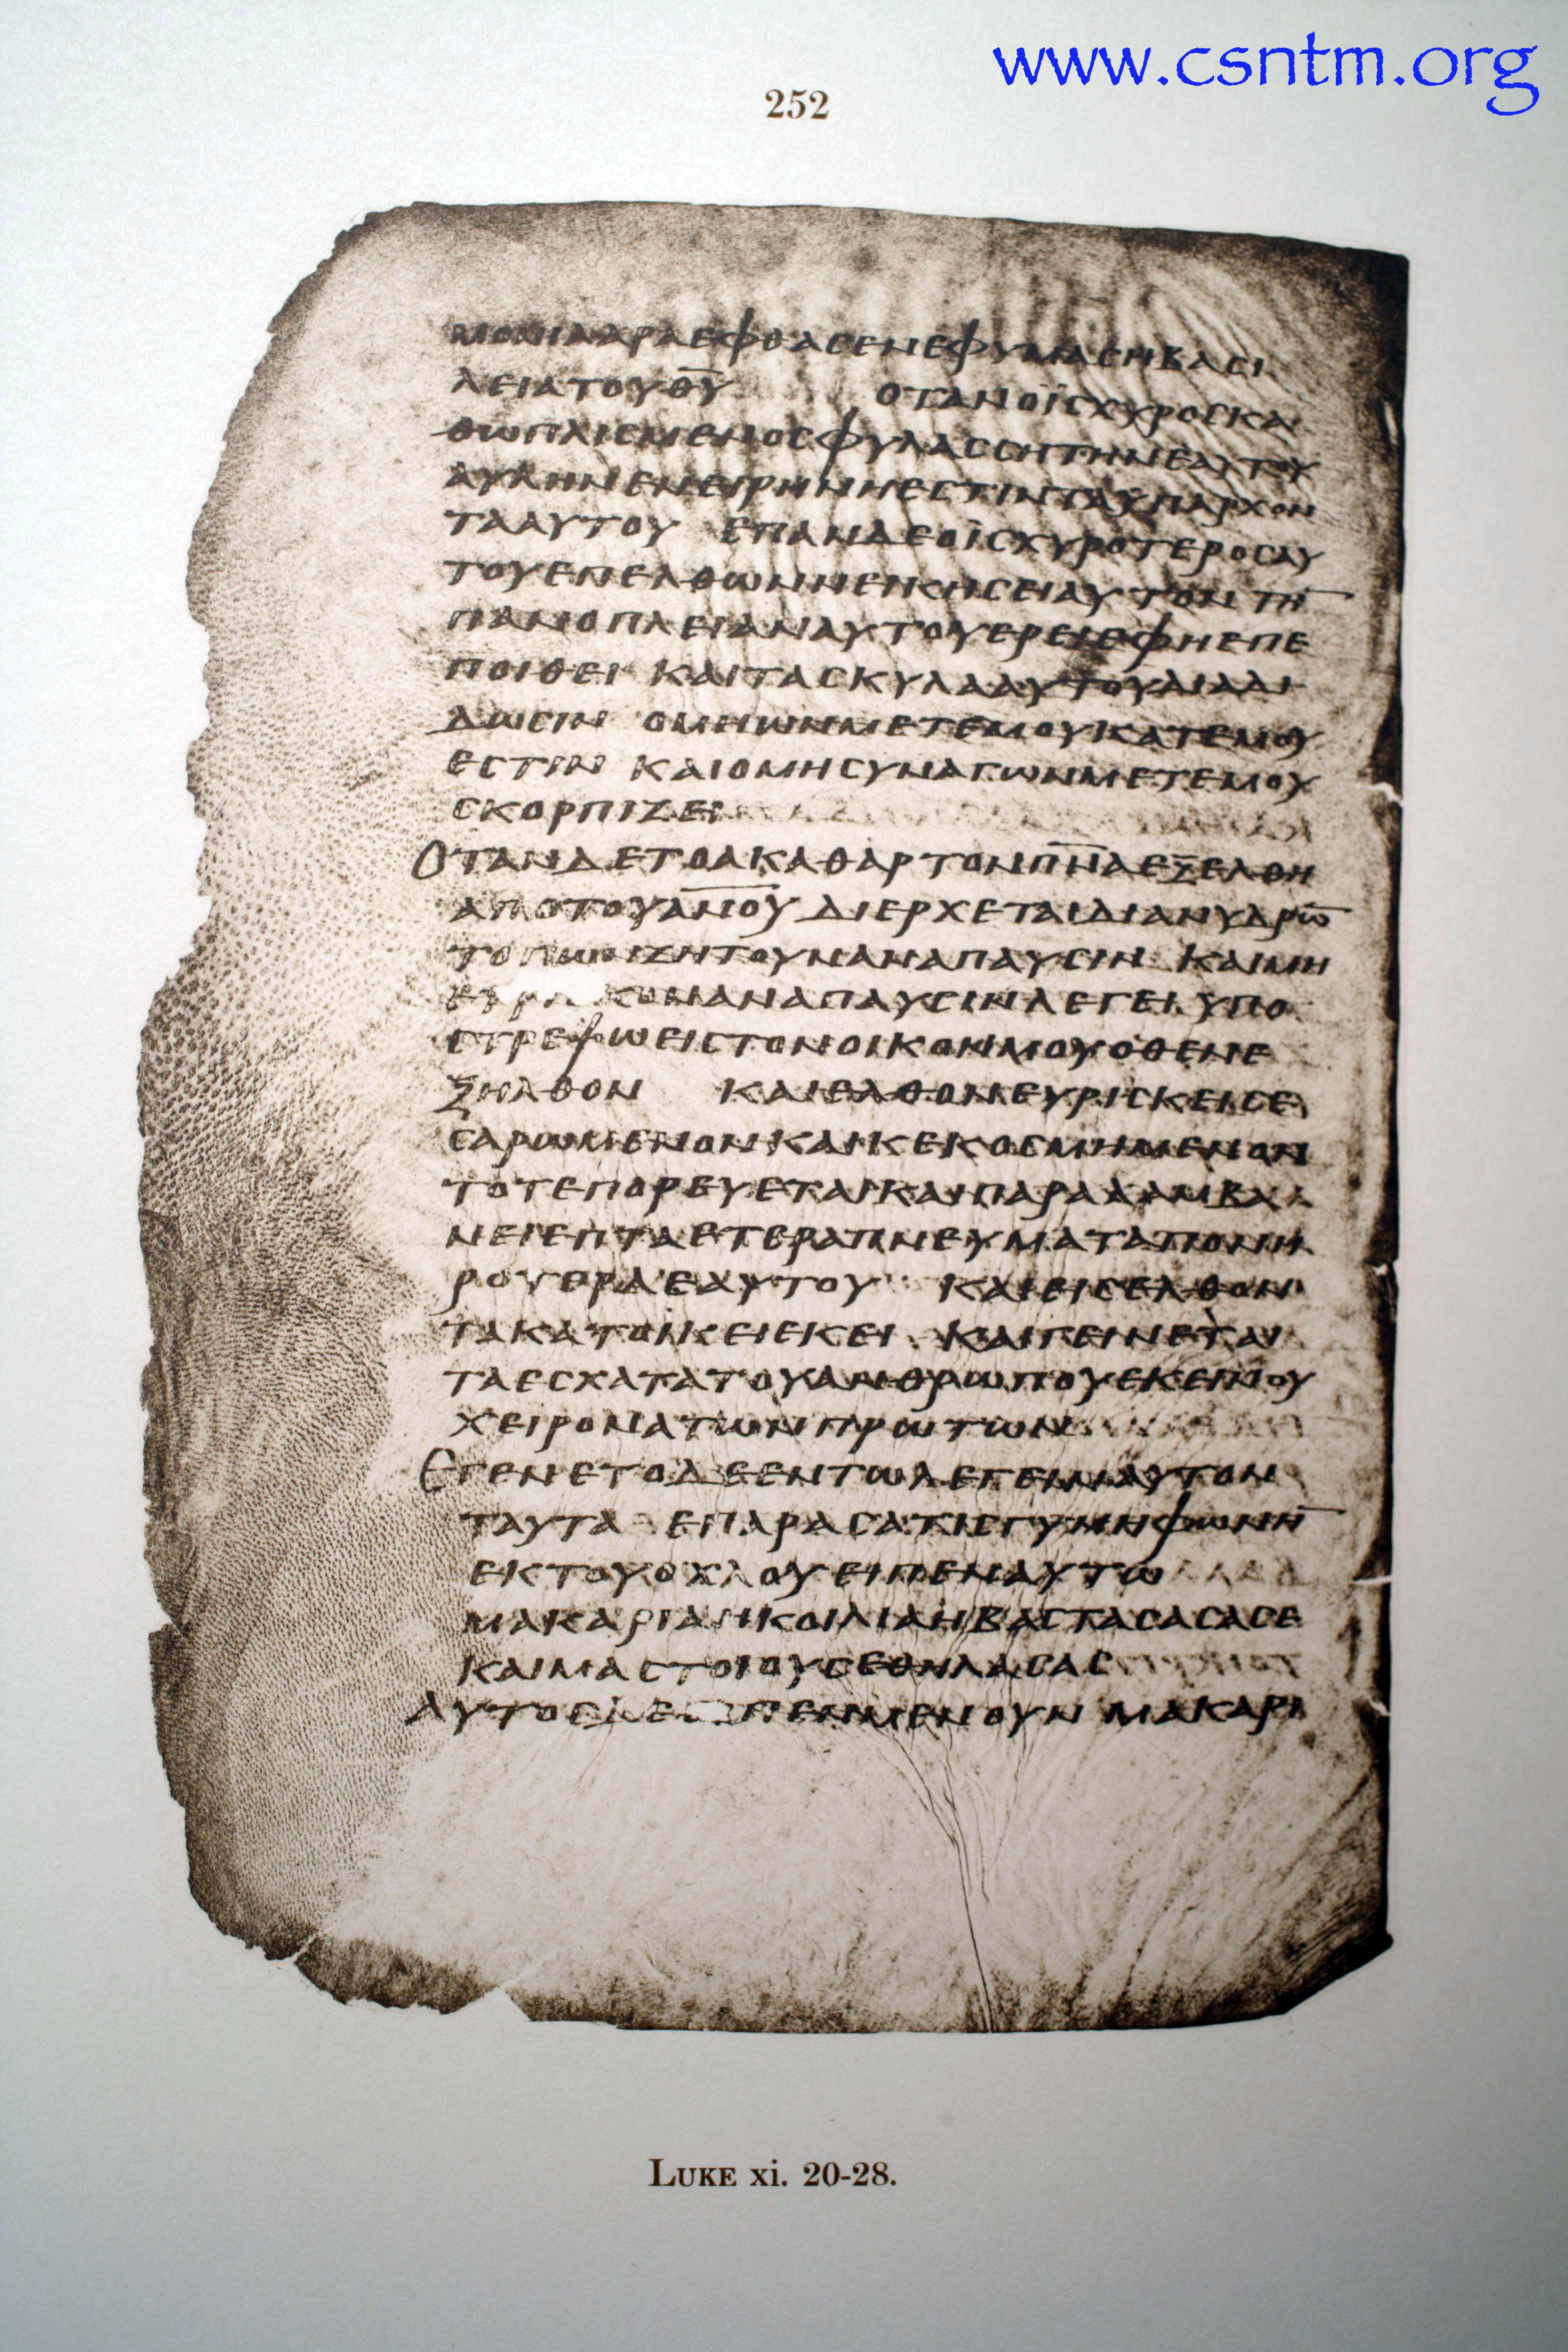 www.csntm.org
252
ΜΟΝΙΑΑΡΑΕΦΘΑCΕΝΕΦΥΜΑCΗΒΑCΙ
ΛΕΙΑΤΟΥΘ̅Υ̅ ΟΤΑΝΟΪCΧΥΡΟCΚΑ
ΘΩΠΛΙCΜΕΝΟCΦΥΛΑCCΗΤΗΝΕΑΥΤΟΥ
ΑΥΛΗΝΕΝΕΙΡΗΝΗΕCΤΙΝΤΑΥΠΑΡΧΟΝ
ΤΑΑΥΤΟΥ ΕΠΑΝΔΕΟΪCΧΥΡΟΤΕΡΟCΑΥ
ΤΟΥΕΠΕΛΘΩΝΝΕΙΚΗCΕΙΑΥΤΟΝΤΗ̅
ΠΑΝΟΠΛΕΙΑΝΑΥΤΟΥΕΡΕΙΕΦΗΕΠΕ
ΠΟΙΘΕΙ ΚΑΙΤΑCΚΥΛΑΑΥΤΟΥΔΙΑΔΙ
ΔΩCΙΝ ΟΜΗΩΝΜΕΤΕΜΟΥΚΑΤΕΜΟΥ
ΕCΤΙΝ ΚΑΙΟΜΗCΥΝΑΓΩΝΜΕΤΕΜΟΥ
CΚΟΡΠΙΖΕΙ
ΟΤΑΝΔΕΤΟΑΚΑΘΑΡΤΟΝΠ̅Ν̅ΑΕΞΕΛΘΗ
ΑΠΟΤΟΥΑ̅Ν̅Ο̅Υ̅ ΔΙΕΡΧΕΤΑΙΔΙΑΝΥΔΡΩ̅
ΤΟΠΩΝΖΗΤΟΥΝΑΝΑΠΑΥCΙΝ ΚΑΙΜΗ
ΕΥΡΙCΚΟΝΑΝΑΠΑΥCΙΝΛΕΓΕΙ ΥΠΟ
CΤΡΕΦΩΕΙCΤΟΝΟΙΚΟΝΜΟΥΟΘΕΝΕ
ΞΗΛΘΟΝ ΚΑΙΕΛΘΟΝΕΥΡΙCΚΕΙCΕ
CΑΡΩΜΕΝΟΝΚΑΙΚΕΚΟCΜΗΜΕΝΟΝ
ΤΟΤΕΠΟΡΕΥΕΤΑΙΚΑΙΠΑΡΑΛΑΜΒΑ
ΝΕΙΕΠΤΑΕΤΕΡΑΠΝΕΥΜΑΤΑΠΟΝΗ
ΡΟΤΕΡΑΕΑΥΤΟΥ ΚΑΙΕΙCΕΛΘΟΝ
ΤΑΚΑΤΟΙΚΕΙΕΚΕΙ ΚΑΙΓΕΙΝΕΤΑΙ
ΤΑΕCΧΑΤΑΤΟΥΑΝΘΡΩΠΟΥΕΚΕΙΝΟΥ
ΧΕΙΡΟΝΑΤΩΝΠΡΩΤΩΝ
ΕΓΕΝΕΤΟΔΕΕΝΤΩΛΕΓΕΙΝΑΥΤΟΝ
ΤΑΥΤΑ ΕΠΑΡΑCΑΤΙCΓΥΝΗΦΩΝΗ̅
ΕΚΤΟΥΟΧΛΟΥΕΙΠΕΝΑΥΤΩ
ΜΑΚΑΡΙΑΗΚΟΙΛΙΑΗΒΑCΤΑCΑCΑCΕ
ΚΑΙΜΑCΤΟΙΟΥCΕΘΗΛΑCΑC
ΑΥΤΟCΔΕΕΙΠΕΝΜΕΝΟΥΝ ΜΑΚΑΡΙ
LUKE xi. 20-28.